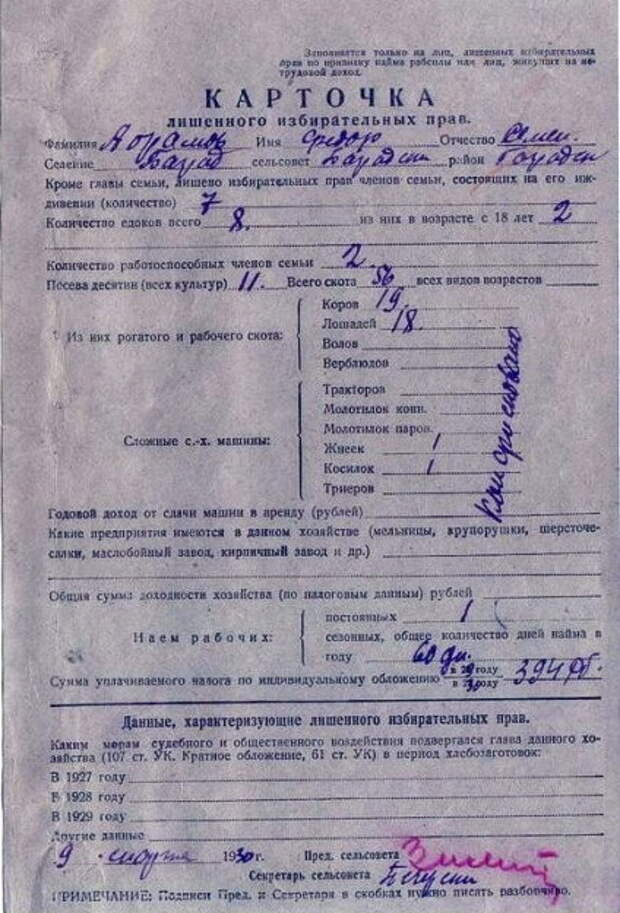 Заполняется только на лиц, лишенных избирательных
прав по признаку найма рабсилы или лиц, живущих на не-
трудовой доход.
КАРТОЧКА
лишенного избирательных прав.
Фамилия Абрамов Имя Федор Отчество Семен.
Селение сельсовет район
Кроме главы семьи, лишено избирательных прав членов семьи, состоящих на его иж-
дивении (количество) 7
Количество едоков всего 8. из них в возрасте с 18 лет 2
Количество работоспособных членов семьи 2.
Посева десятин (всех культур) 11. Всего скота 56 всех видов возрастов
Из них рогатого и рабочего скота:
Коров 19.
Лошадей 18.
Волов
Верблюдов
Сложные с.-х. машины:
Тракторов
Молотилок конн.
Молотилок паров.
Жнеек 1
Косилок 1
Триеров
Конфисковано
Годовой доход от сдачи машин в аренду (рублей)
Какие предприятия имеются в данном хозяйстве (мельницы, крупорушки, шерсточе-
салки, маслобойный завод, кирпичный завод и др.)
Общая сумма доходности хозяйства (по налоговым данным) рублей
Наем рабочих:
постоянных 1
сезонных, общее количество дней найма в
году 60 дн.
Сумма уплачиваемого налога по индивидуальному обложению в году
в году 394 рб.
Данные, характеризующие лишенного избирательных прав.
Каким мерам судебного и общественного воздействия подвергался глава данного хо-
зяйства (107 ст. УК. Кратное обложение, 61 ст. УК) в период хлебозаготовок:
В 1927 году
В 1928 году
В 1929 году
Другие данные
9 марта 1930 г. Пред. сельсовета
Секретарь сельсовета
ПРИМЕЧАНИЕ: Подписи Пред. и Секретаря в скобках нужно писать разборчиво.